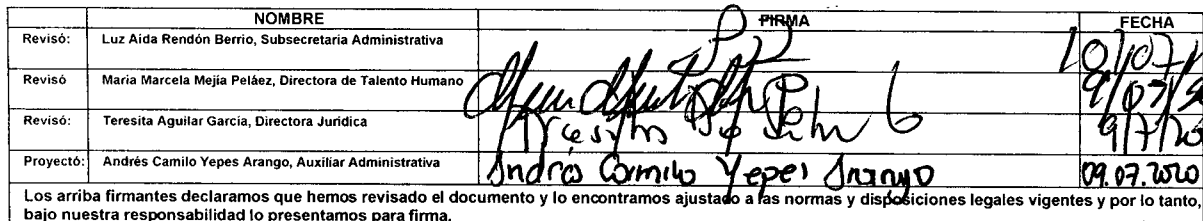 NOMBRE FIRMA FECHA
Revisó: Luz Aida Rendón Berrio, Subsecretaria Administrativa
Revisó Maria Marcela Mejía Peláez, Directora de Talento Humano
Revisó: Teresita Aguilar García, Directora Jurídica
Proyectó: Andrés Camilo Yepes Arango, Auxiliar Administrativa Andrés Camilo Yepes Arango 09.07.2020
Los arriba firmantes declaramos que hemos revisado el documento y lo encontramos ajustado a las normas y disposiciones legales vigentes y por lo tanto,
bajo nuestra responsabilidad lo presentamos para firma.